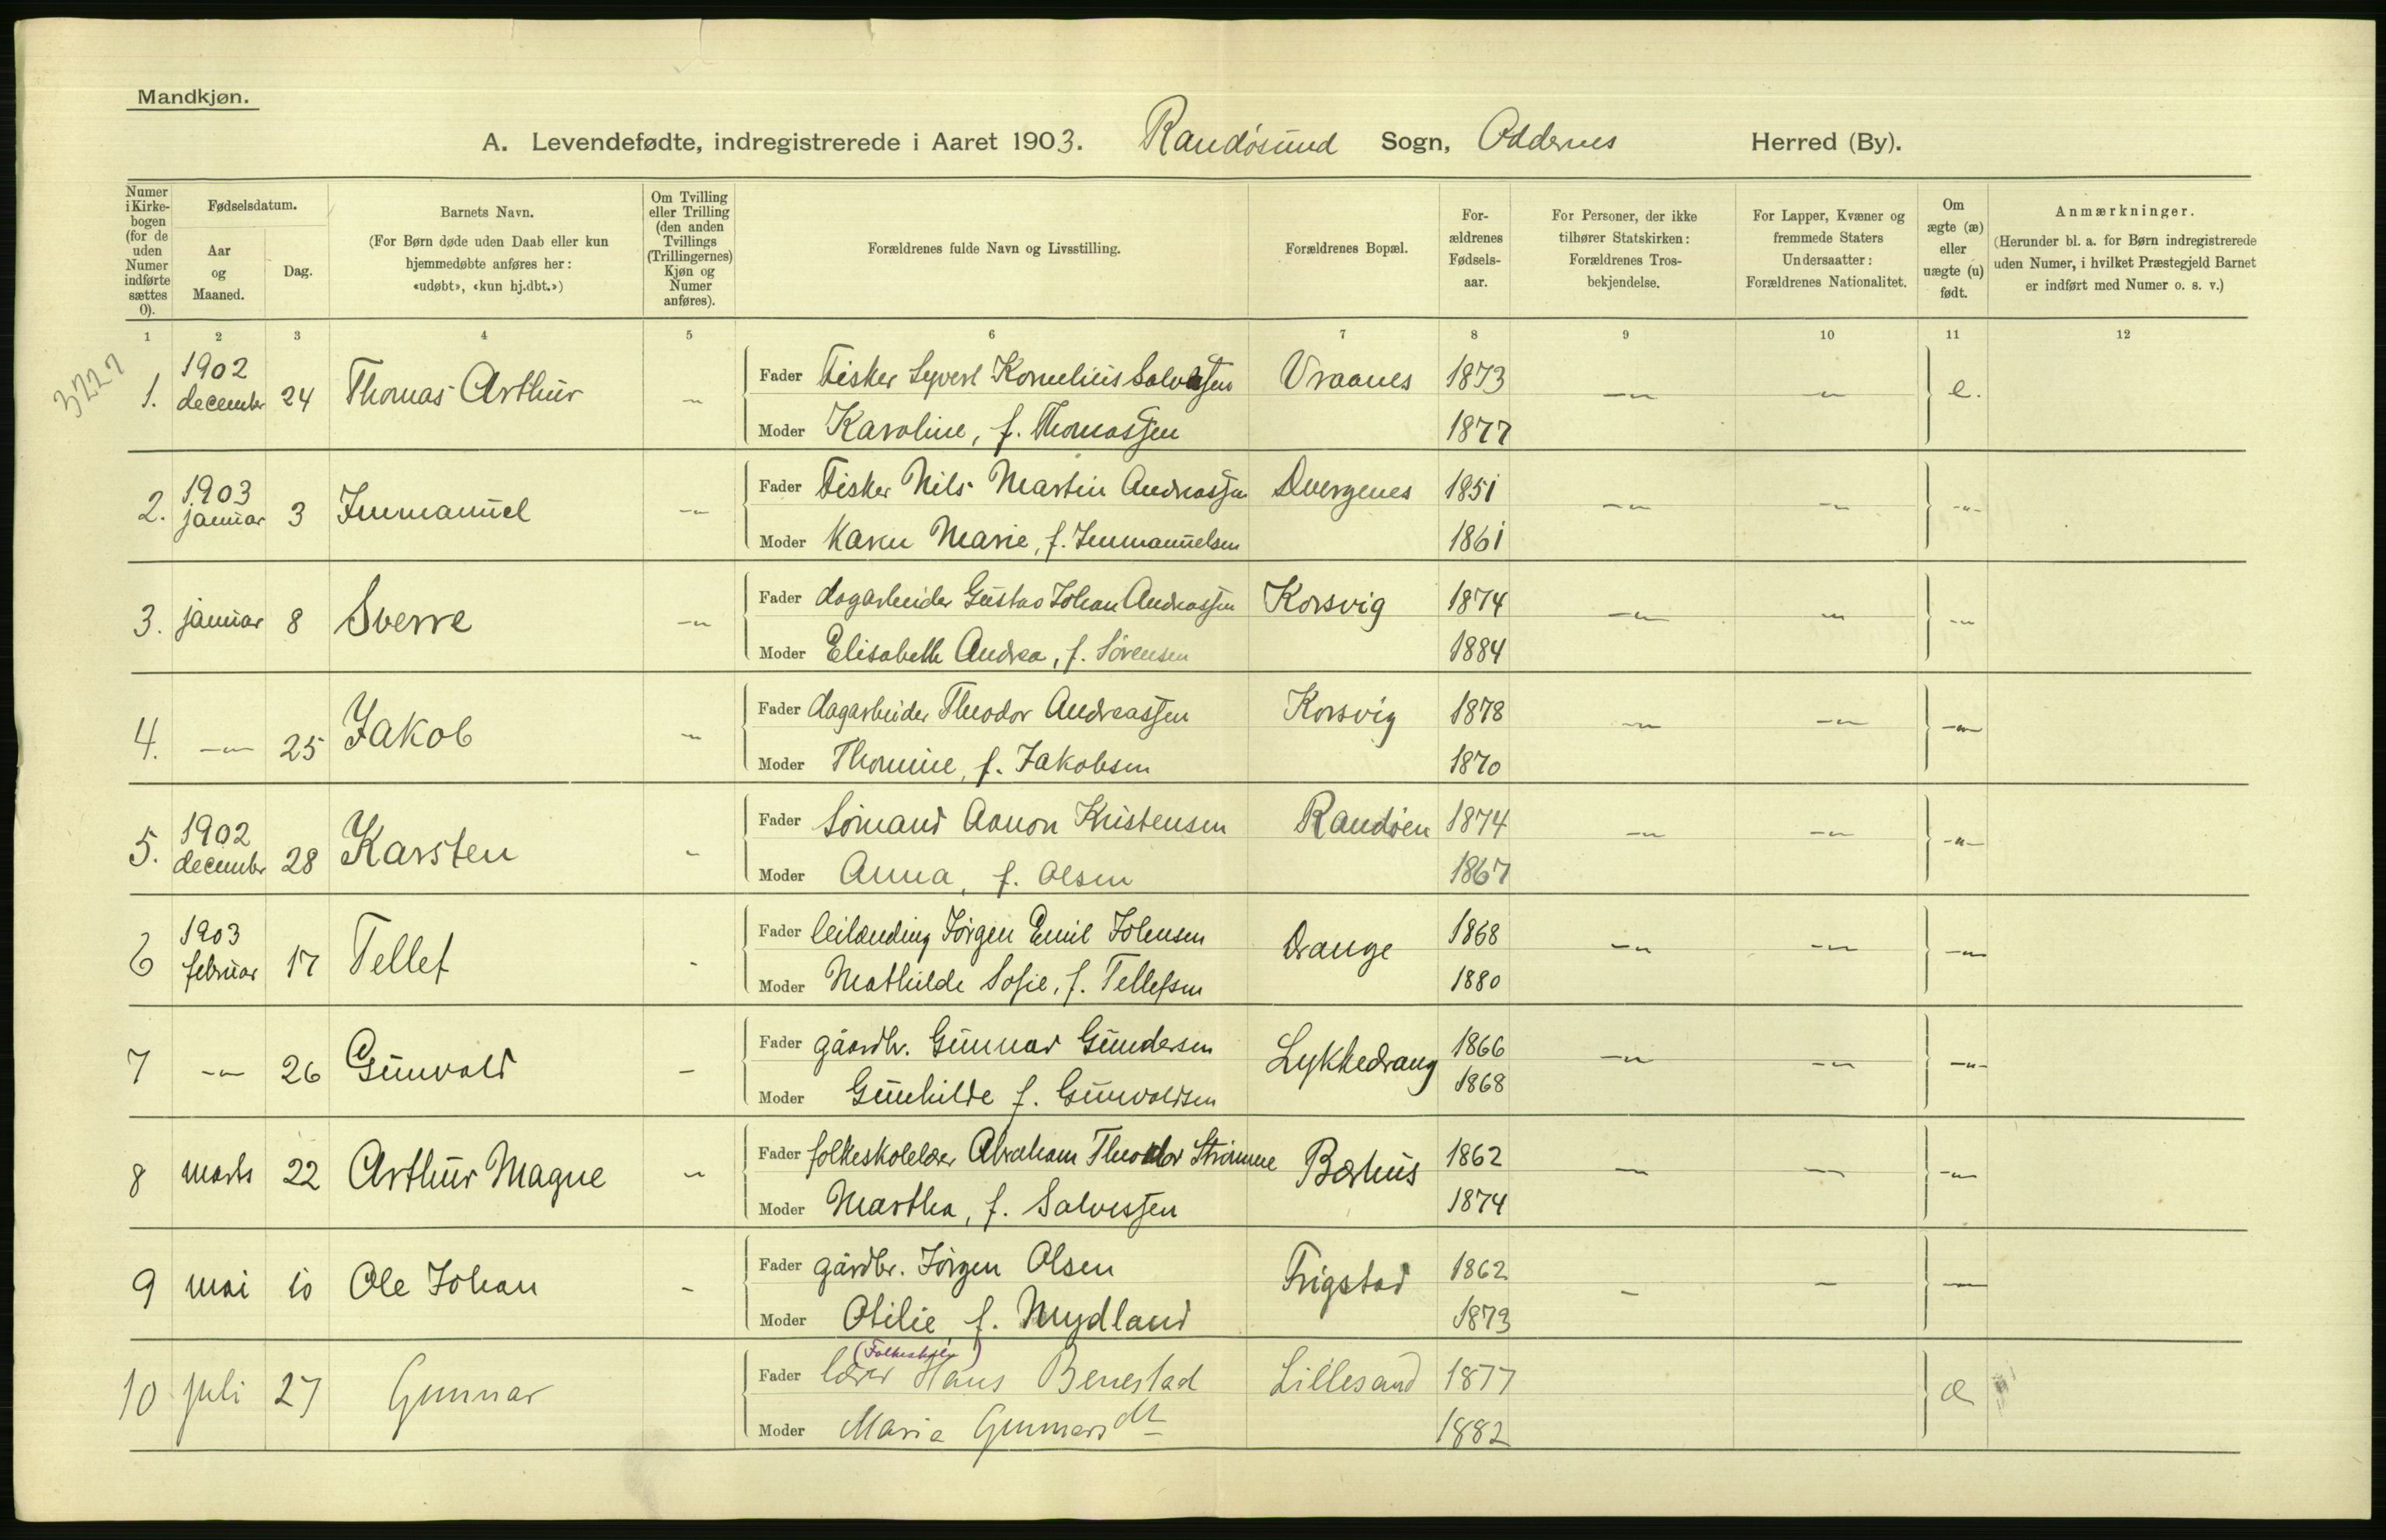 Mandkjøn.
A. Levendefødte, indregistrerede i Aaret 1903. Randøsund Sogn, Oddernes Herred (By).
Numer i Kirkebogen (for de uden Numer indførte sættes 0).
Fødselsdatum.
Aar og Maaned.
Dag.
Barnets Navn.
(For Børn døde uden Daab eller kun hjemmedøbte anføres her: «udøbt», «kun hj.dbt.»)
Om Tvilling eller Trilling (den anden Tvillings (Trillingernes) Kjøn og Numer anføres).
Forældrenes fulde Navn og Livsstilling.
Forældrenes Bopæl.
Forældrenes Fødselsaar.
For Personer, der ikke tilhører Statskirken: Forældrenes Trosbekjendelse.
For Lapper, Kvæner og fremmede Staters Undersaatter: Forældrenes Nationalitet.
Om ægte (æ) eller uægte (u) født.
Anmærkninger.
(Herunder bl. a. for Børn indregistrerede uden Numer, i hvilket Præstegjeld Barnet er indført med Numer o. s. v.)
1 2 3 4 5 6 7 8 9 10 11 12
3227
1. 1902 decembr 24 Thomas Arthur -"- Fader Fisker Syvert Kornelius Salvesen Vraanes 1873 -"- -"- e.
Moder Karoline, f. Thomassen 1877
2. 1903 januar 3 Immanuel -"- Fader Fisker Nils Martin Andreassen Dvergenes 1851 -"- -"- -"-
Moder Karen Marie, f. Immanuelsen 1861
3. januar 8 Sverre -"- Fader dagarbeider Gustav Johan Andreassen Korsvig 1874 -"- -"- -"-
Moder Elisabeth Andrea, f. Sørensen 1884
4. -"- 25 Jakob -"- Fader dagarbeider Theodor Andreassen Korsvig 1878 -"- -"- -"-
Moder Thomine, f. Jakobsen 1870
5. 1902 decembr 28 Karsten - Fader Sømand Aanon Kristensen Randøen 1874 -"- -"- -"-
Moder Anna, f. Olsen 1867
6 1903 februar 17 Tellef - Fader leilænding Jørgen Emil Johnsen Drange 1868 -"- -"- -"-
Moder Mathilde Sofie, f. Tellefsen 1880
7 -"- 26 Gunvald - Fader gaardbr. Gunnar Gundersen Lykkedrang 1866 -"- -"- -"-
Moder Gunhilde f. Gunvaldsen 1868
8 marts 22 Arthur Magne -"- Fader folkeskolelærer Abraham Theodor Strømme Bærhus 1862 - - -"-
Moder Martha, f. Salvessen 1874
9 mai 10 Ole Johan - Fader gårdbr. Jørgen Olsen Frigstad 1862 - - -"-
Moder Otilie, f. Mydland 1873
(Folkeskole)
10 juli 27 Gunnar Fader lærer Hans Benestad Lillesand 1877 æ
Moder Marie Gunnarsdt 1882